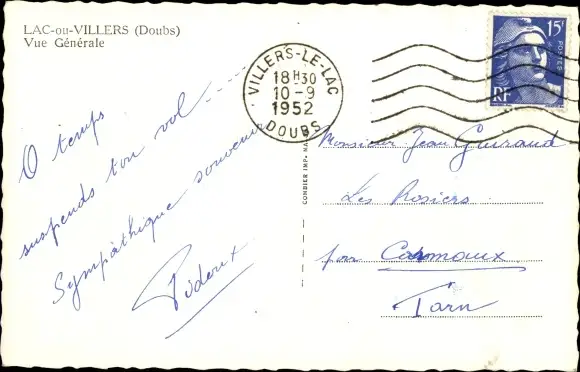 LAC-ou-VILLERS (Doubs)
Vue Générale
VILLERS-LE-LAC
18H30
10-9
1952
DOUBS
15F
POSTES
RF
O temps
suspends ton vol----
Sympathique souvenir
Pidoux
COMBIER IMP. MA
Monsieur Jean Guiraud
Les Rosiers
par Carmaux
Tarn